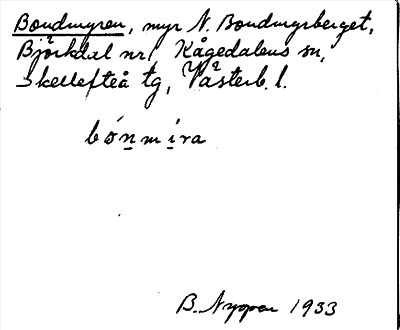 Bondmyren, myr N. Bondmyrberget,
Björkdal nr 1 Kågedalens sn,
Skellefteå tg, Västerb. l.
bónmíra
B. Nyman 1933